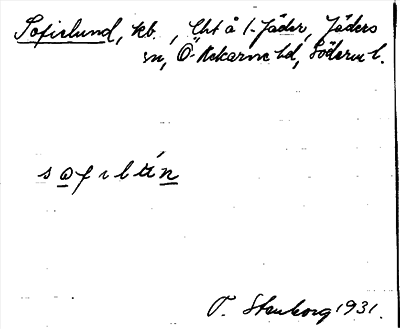 Sofielund, kb., Cht å 1. Jäder, Jäders
sn, Ö-Rekarne hd, Söderm l.
sofilún
T. Stenborg 1931.